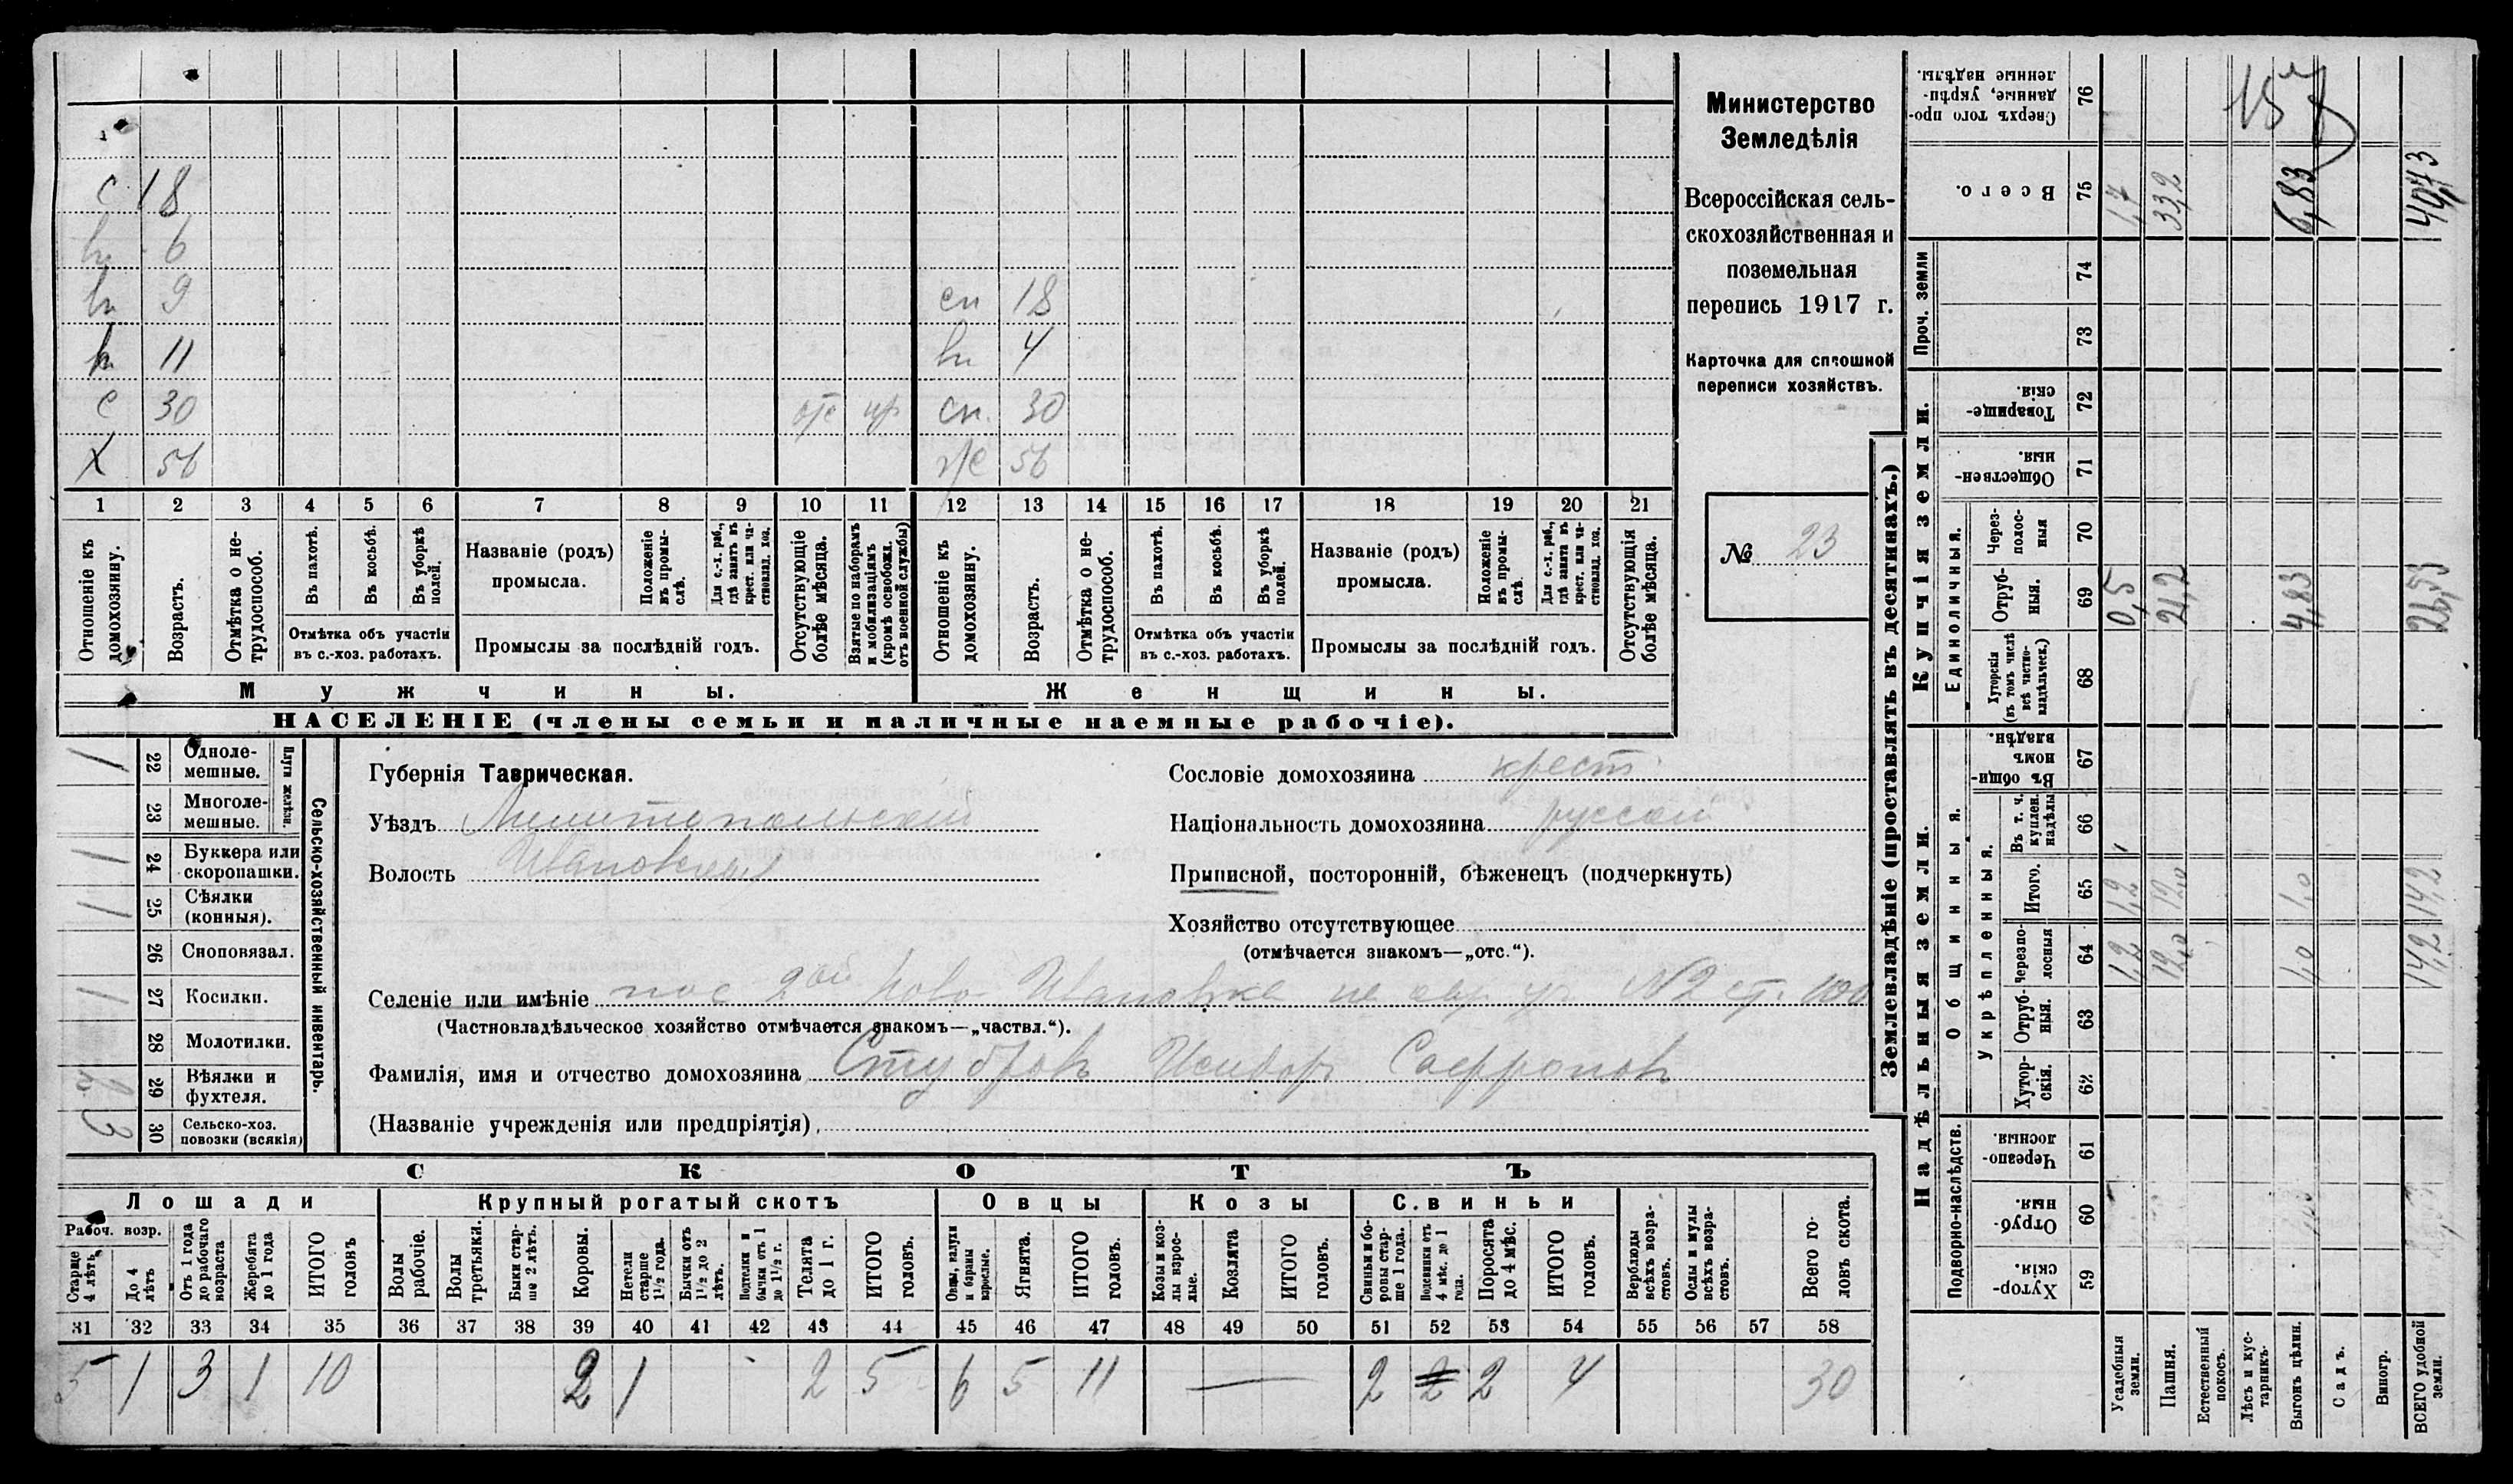 с 18
вн 6
вн 9 сп 18
вн 11 вн 4
с 30 отс пр сп. 30
х 56 ж 56
1 2 3 4 5 6 7 8 9 10 11 12 13 14 15 16 17 18 19 20 21
Отношеніе къ домохозяину.
Возрастъ.
Отмѣтка о не-трудоспособ.
Въ пахотѣ.
Въ косьбѣ.
Въ уборкѣ полей.
Отмѣтка объ участіи въ с.-хоз. работахъ.
Названіе (родъ) промысла.
Положеніе въ промы-слѣ.
Для с.-х. раб., гдѣ занятъ въ крест. или ча-стновлад. хоз.
Промыслы за послѣдній годъ.
Отсутствующіе болѣе мѣсяца.
Взятые по наборамъ и мобилизаціямъ (кромѣ освобожд. отъ военной службы)
Отношеніе къ домохозяину.
Возрастъ.
Отмѣтка о не-трудоспособ.
Въ пахотѣ.
Въ косьбѣ.
Въ уборкѣ полей.
Отмѣтка объ участіи въ с.-хоз. работахъ.
Названіе (родъ) промысла.
Положеніе въ промы-слѣ.
Для с.-х. раб., гдѣ занятъ въ крест. или ча-стновлад. хоз.
Промыслы за послѣдній годъ.
Отсутствующія болѣе мѣсяца.
Мужчины. Женщины.
НАСЕЛЕНІЕ (члены семьи и наличные наемные рабочіе).
Министерство
Земледѣлія
Всероссійская сель-
скохозяйственная и
поземельная
перепись 1917 г.
Карточка для сплошной
переписи хозяйствъ.
№ 23
Сельско-хозяйственный инвентарь.
Плуги желѣзн.
1 22 Одноле-мешные.
23 Многоле-мешные.
1 24 Буккера или скоропашки.
1 25 Сѣялки (конныя).
26 Сноповязал.
1 27 Косилки.
28 Молотилки.
29 Вѣялки и фухтеля.
3 30 Сельско-хоз. повозки (всякія)
Губернія Таврическая.
Уѣздъ Мелитопольскій
Волость Ивановская
Сословіе домохозяина крест.
Національность домохозяина русскій
Приписной, посторонній, бѣженецъ (подчеркнуть)
Хозяйство отсутствующее
(отмѣчается знакомъ—„отс.“).
Селеніе или имѣніе пос 2ой Ново-Ивановка № 2 ст. 100
(Частновладѣльческое хозяйство отмѣчается знакомъ—„частвл.“).
Фамилія, имя и отчество домохозяина Исидоръ Софроновъ
(Названіе учрежденія или предпріятія)
СКОТЪ
Лошади Крупный рогатый скотъ Овцы Козы Свиньи
Рабоч. возр.
Старше 4 лѣтъ
До 4 лѣтъ
Отъ 1 года до рабочаго возраста
Жеребята до 1 года
ИТОГО головъ
Волы рабочіе.
Волы третьяки.
Быки стар-ше 2 лѣтъ.
Коровы.
Нетели старше 1½ года.
Бычки отъ 1½ до 2 лѣтъ.
Подтелки и бычки отъ 1 до 1½ г.
Телята до 1 г.
ИТОГО головъ.
Овцы, валухи и бараны взрослые.
Ягнята.
ИТОГО головъ.
Козы и коз-лы взрос-лые.
Козлята
ИТОГО головъ.
Свиньи и бо-ровы стар-ше 1 года.
Подсвинки отъ 4 мѣс. до 1 года.
Поросята до 4 мѣс.
ИТОГО головъ.
Верблюды всѣхъ возра-стовъ.
Ослы и мулы всѣхъ возра-стовъ.
Всего го-ловъ скота.
31 32 33 34 35 36 37 38 39 40 41 42 43 44 45 46 47 48 49 50 51 52 53 54 55 56 57 58
5 1 3 1 10 2 1 2 5 6 5 11 — 2 2 2 4 30
Землевладѣніе (проставлять въ десятинахъ.)
Надѣльныя земли. Купчія земли. Проч. земли
Подворно-наслѣдств. Общинныя. Укрѣпленныя. Единоличныя.
Хутор-скія. 59
Отруб-ныя. 60
Черезпо-лосныя. 61
Хутор-скія. 62
Отруб-ныя. 63
Черезпо-лосныя 64 1,2 12,0 1,0 14,2
Итого. 65 1,2 12,0 1,0 14,2
Въ т. ч. куплен. надѣлы 66
Въ общин-номъ владѣн. 67
Хуторскія (въ томъ числѣ всѣ частно-владѣльческ.) 68
Отруб-ныя. 69 0,5 21,2 4,83 26,53
Через-полос-ныя 70
Обществен-ныя. 71
Товарище-скія. 72
73
74
Всего. 75 1,7 33,2 40,73
Сверхъ того про-данные, укрѣп-ленные надѣлы. 76
Усадебныя земли.
Пашня.
Естественный покосъ.
Лѣсъ и кус-тарникъ.
Выгонъ цѣлин.
Садъ.
Виногр.
ВСЕГО удобной земли.